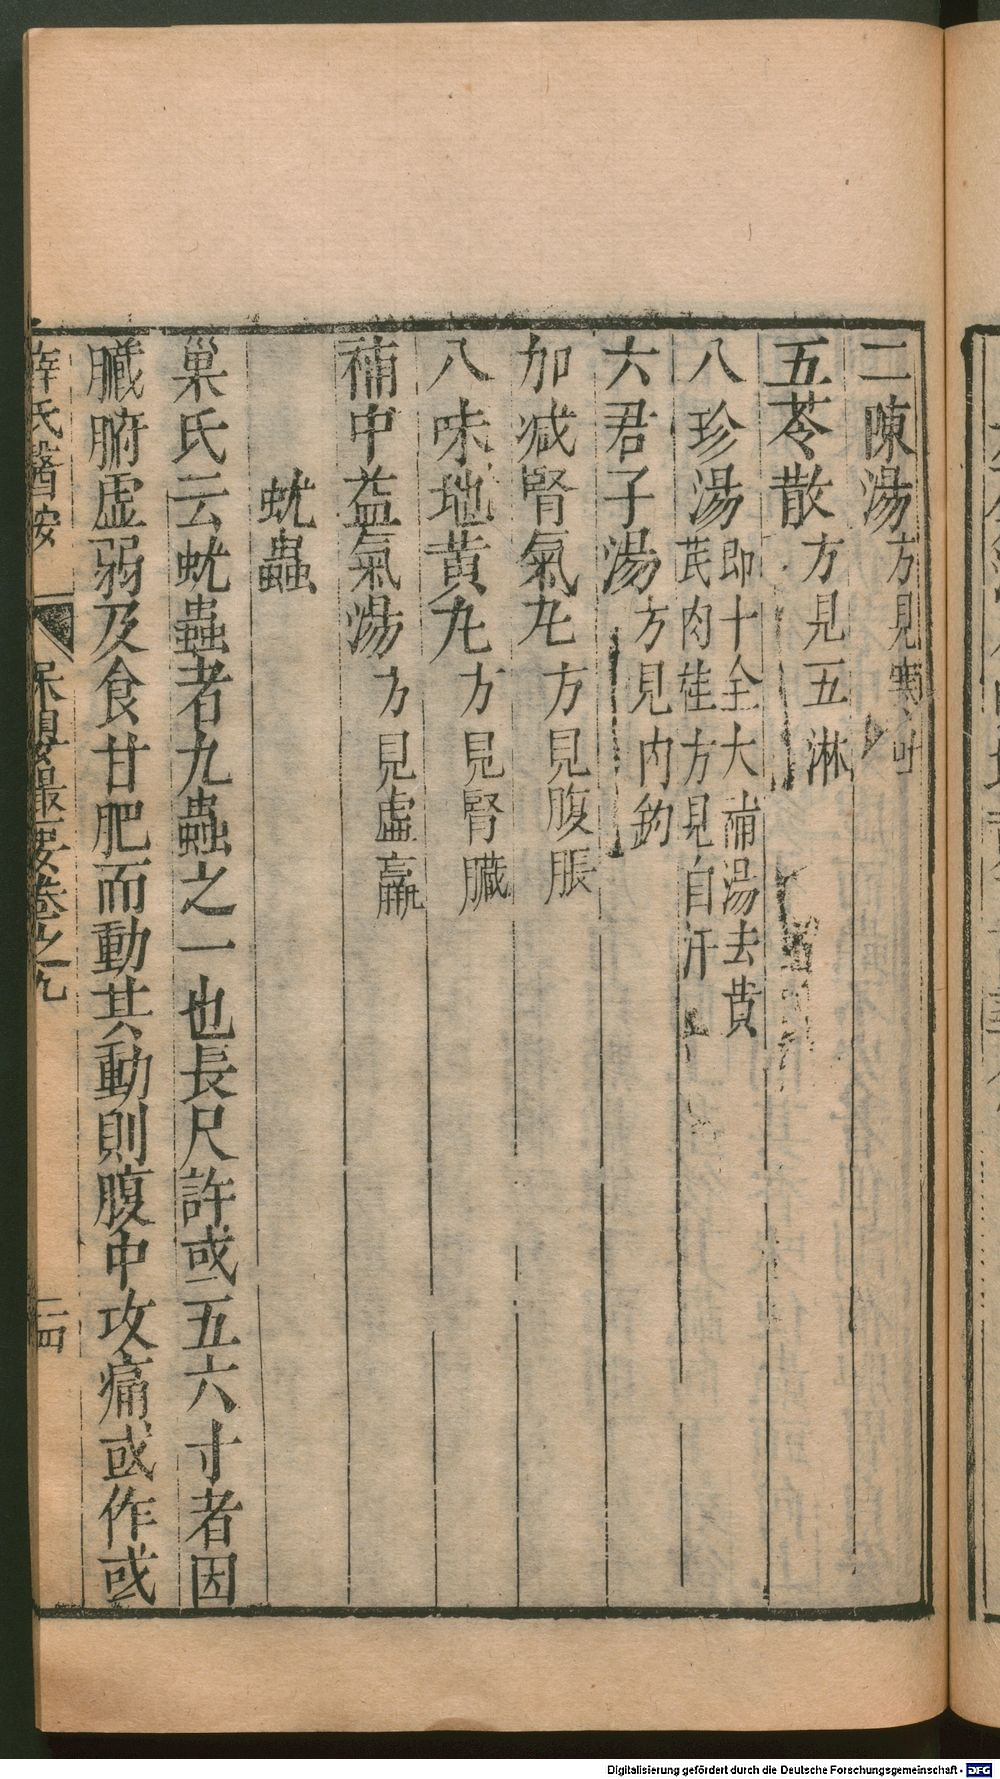 二陳湯方見寒吐
五苓散方見五淋
八珍湯即十全大補湯去黃芪肉桂方見自汗
六君子湯方見内鈞
加减腎氣𠀋方見腹脹
八味地黄𠀋方見腎臓
補中益氣湯方見虛羸
蚘蟲
巢氏云蚘蟲者九蟲之一也長尺許或五六寸者因
臓腑虚弱及食甘肥而動其動則腹中攻痛或作或
薛氏醫按 保嬰撮要卷之九 二四
Digitalisierung gefördert durch die Deutsche Forschungsgemeinschaft - DFG